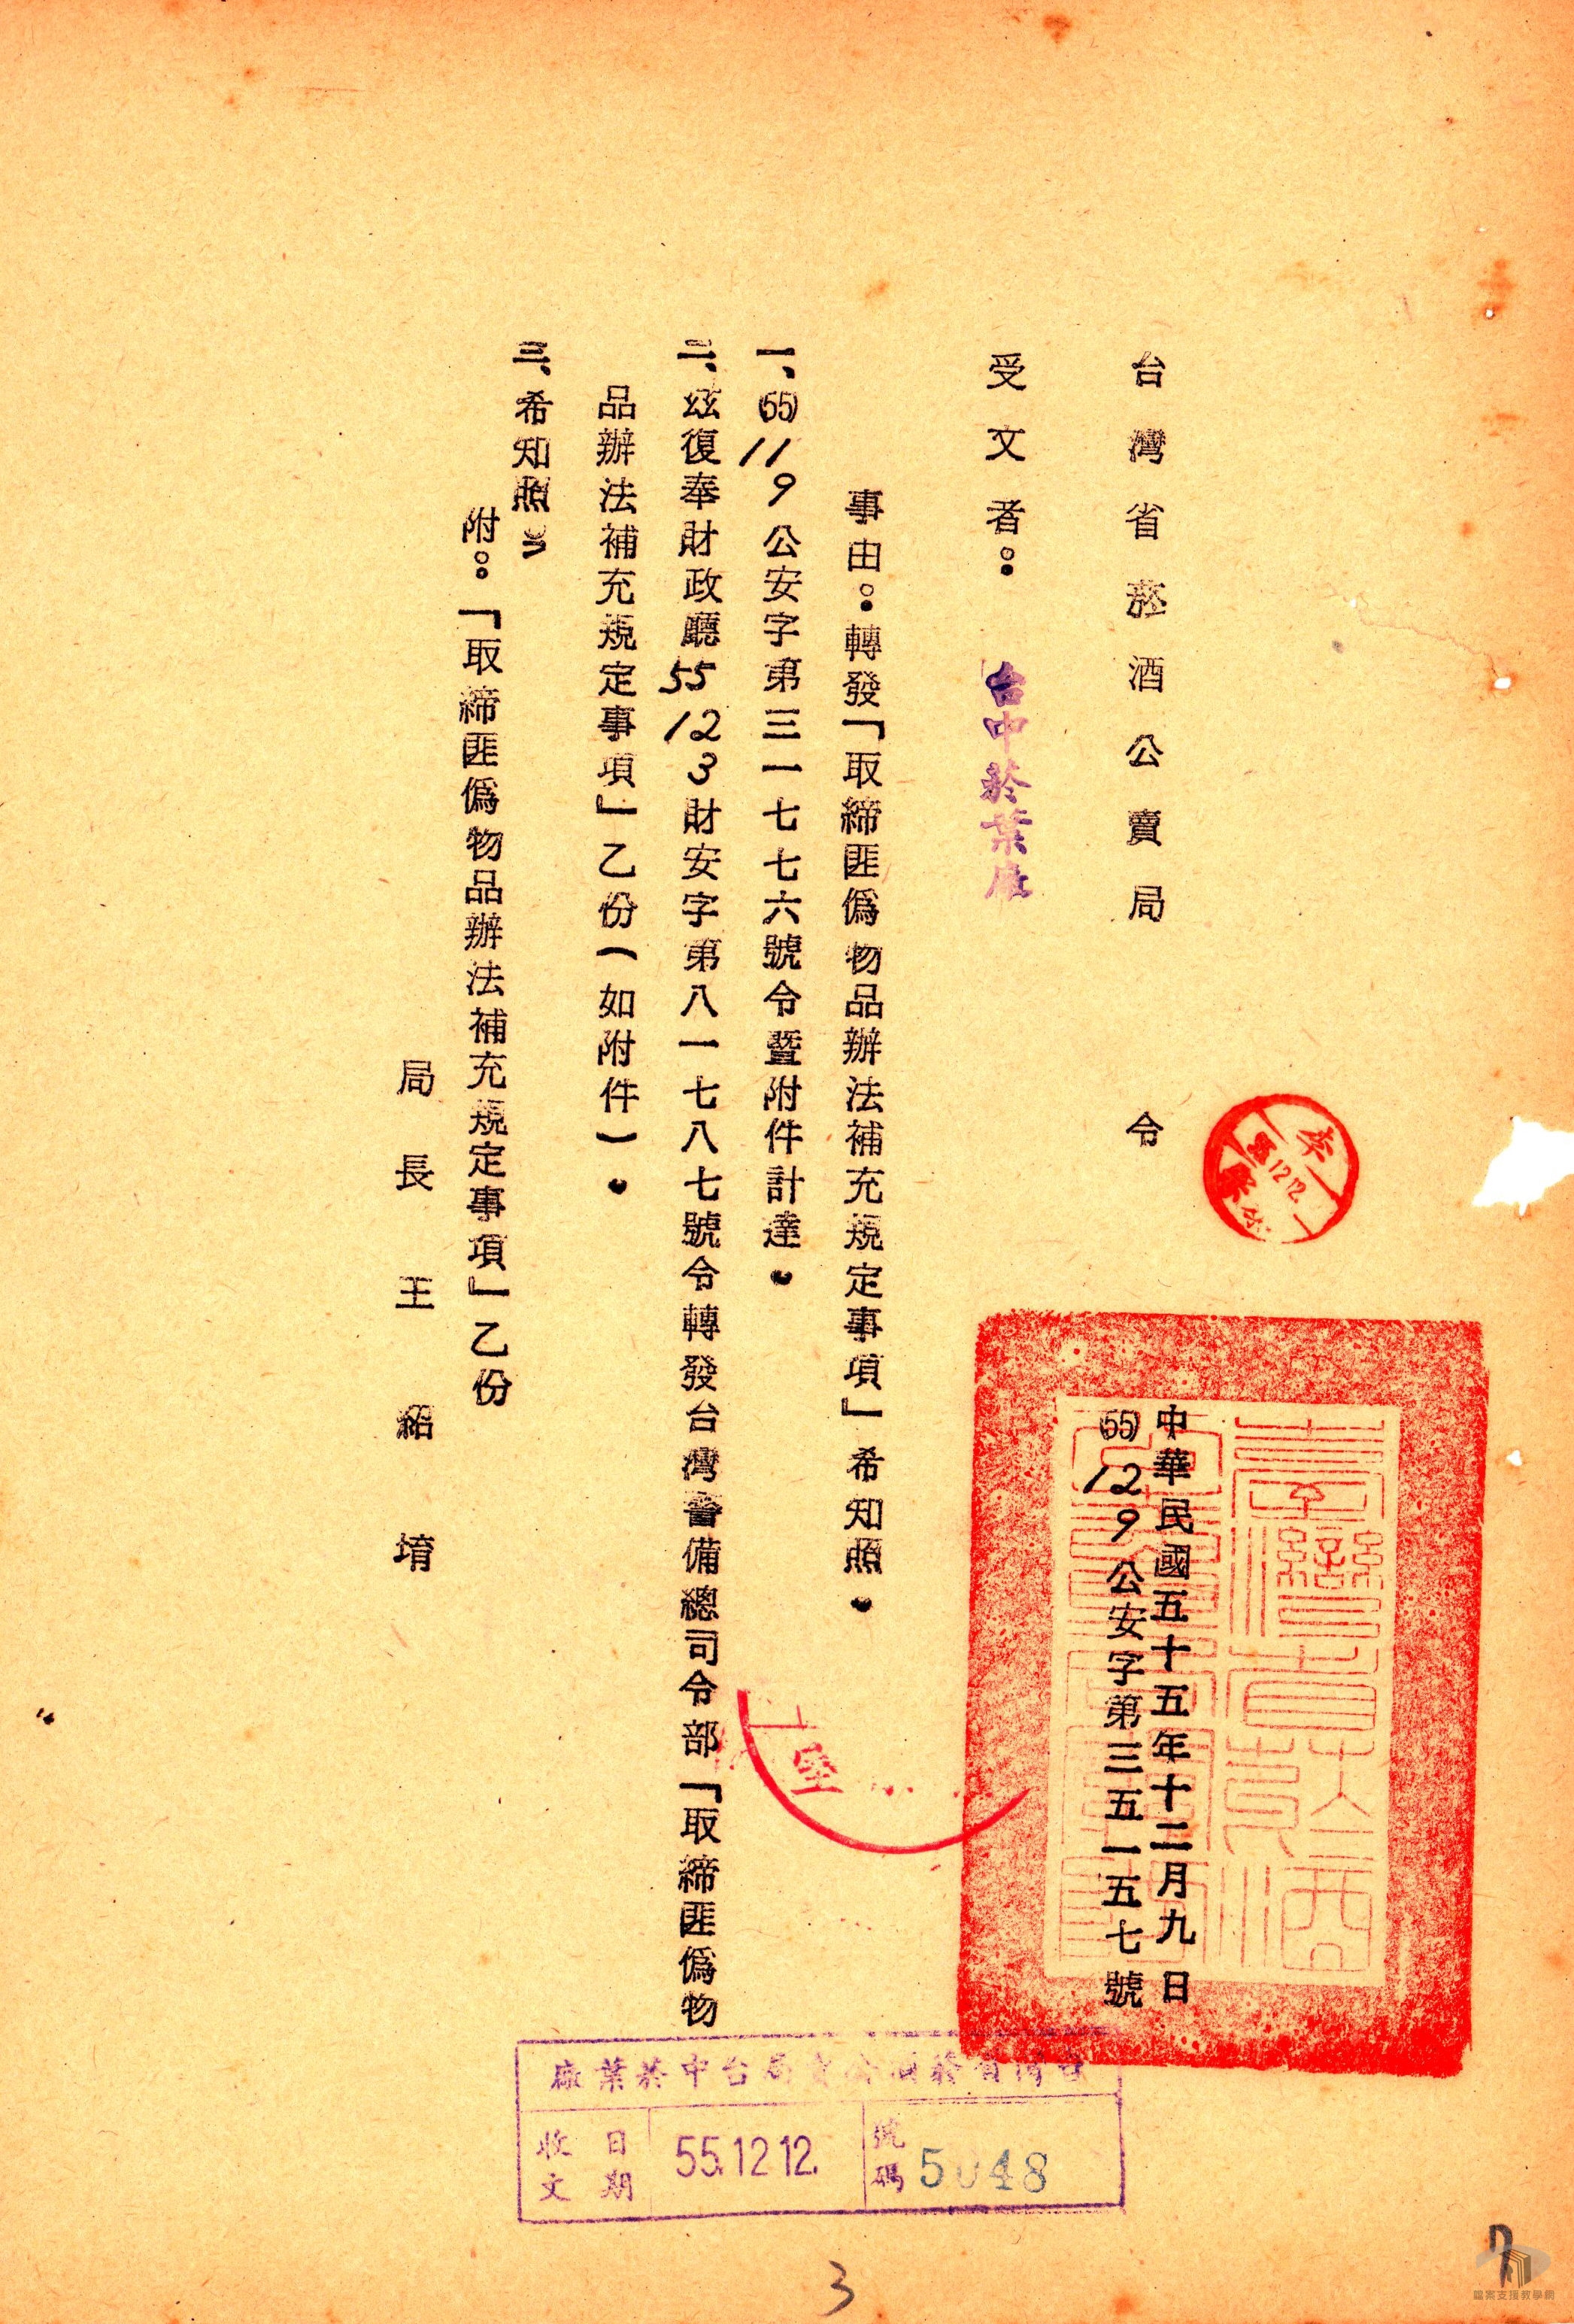 台灣省菸酒公賣局　令
中華民國五十五年十二月九日
(55) 12 9 公安字第三五一五七號
受文者：台中菸葉廠
事由：轉發「取締匪偽物品辦法補充規定事項」希知照。
一、(55) 11 9 公安字第三一七七六號令暨附件計達。
二、玆復奉財政廳 55 12 3 財安字第八一七八七號令轉發台灣警備總司令部「取締匪偽物
品辦法補充規定事項」乙份（如附件）。
三、希知照。
附：「取締匪偽物品辦法補充規定事項」乙份
局長 王紹堉
李
12.12.
室
台灣省菸酒公賣局台中菸葉廠
收文
日期
55.12.12.
號碼
5048
3
檔案支援教學網